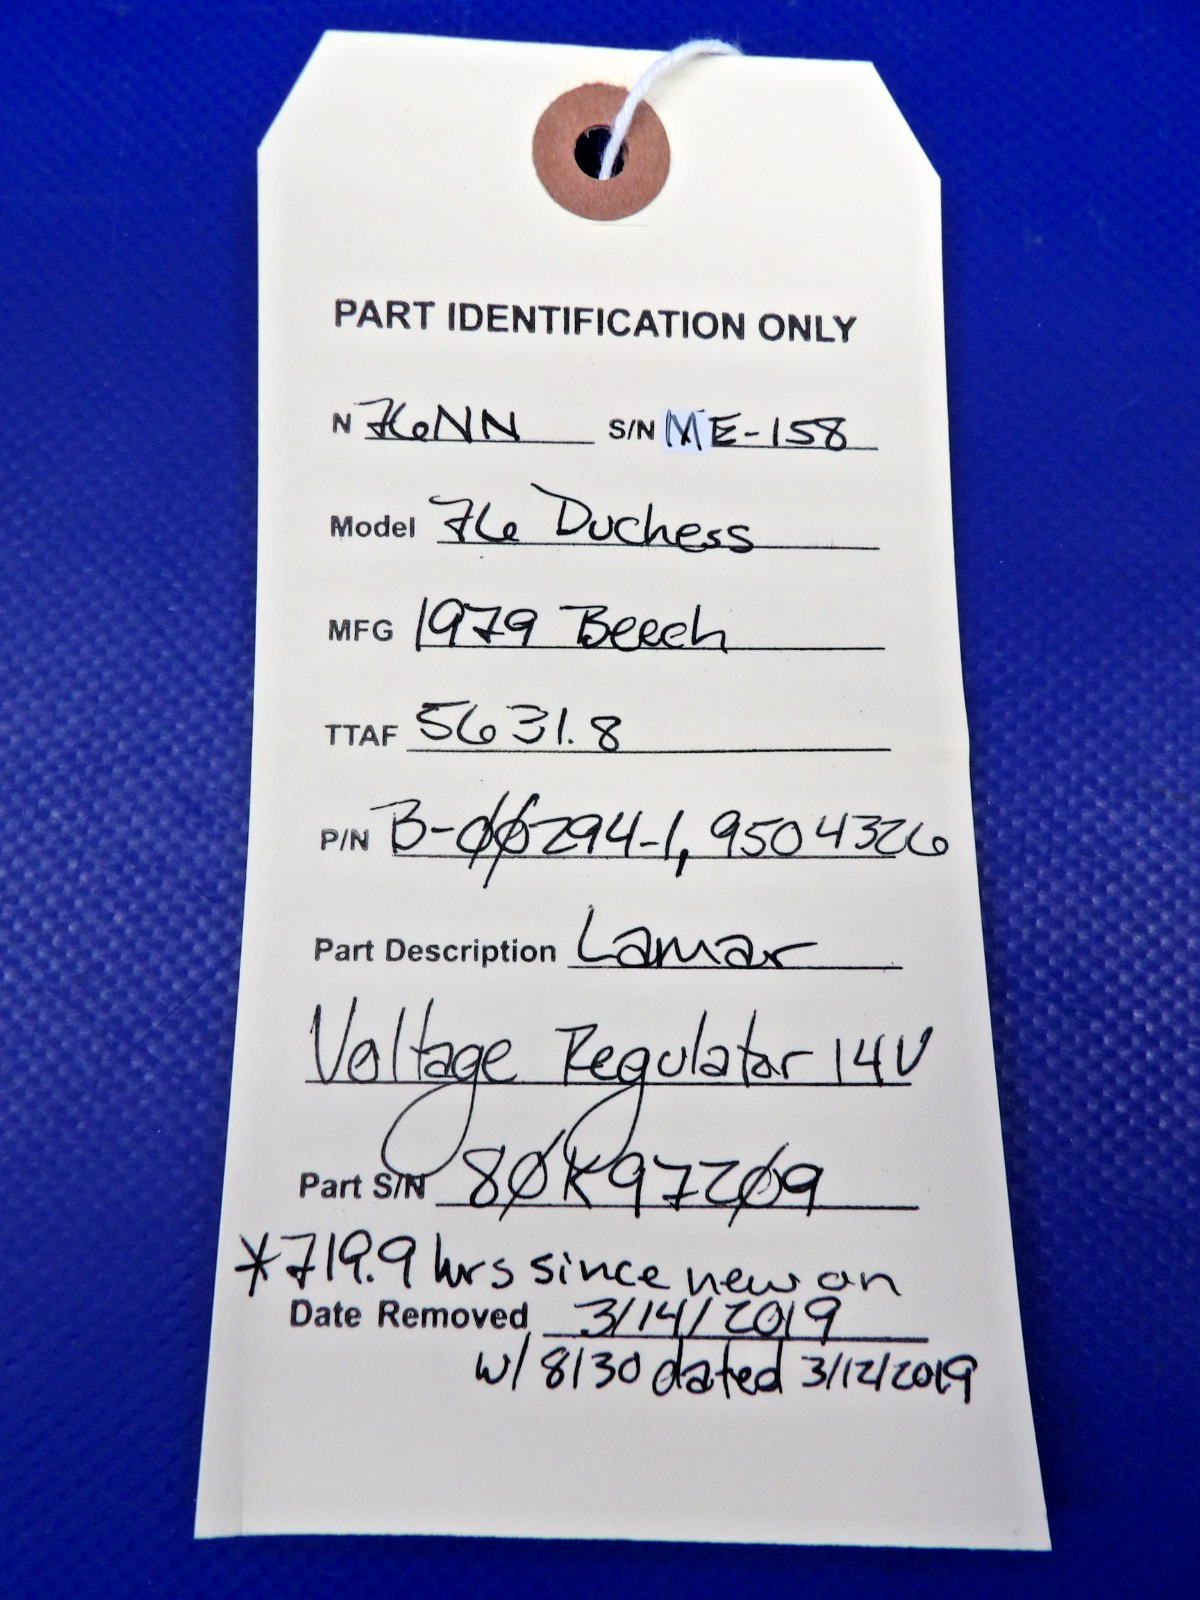 PART IDENTIFICATION ONLY
N 76NN S/N ME-158
Model 76 Duchess
MFG 1979 Beech
TTAF 5631.8
P/N B-00294-1, 9504326
Part Description Lamar
Voltage Regulator 14V
Part S/N 80K97209
*719.9 hrs since new on
Date Removed 3/14/2019
w/ 8130 dated 3/12/2019